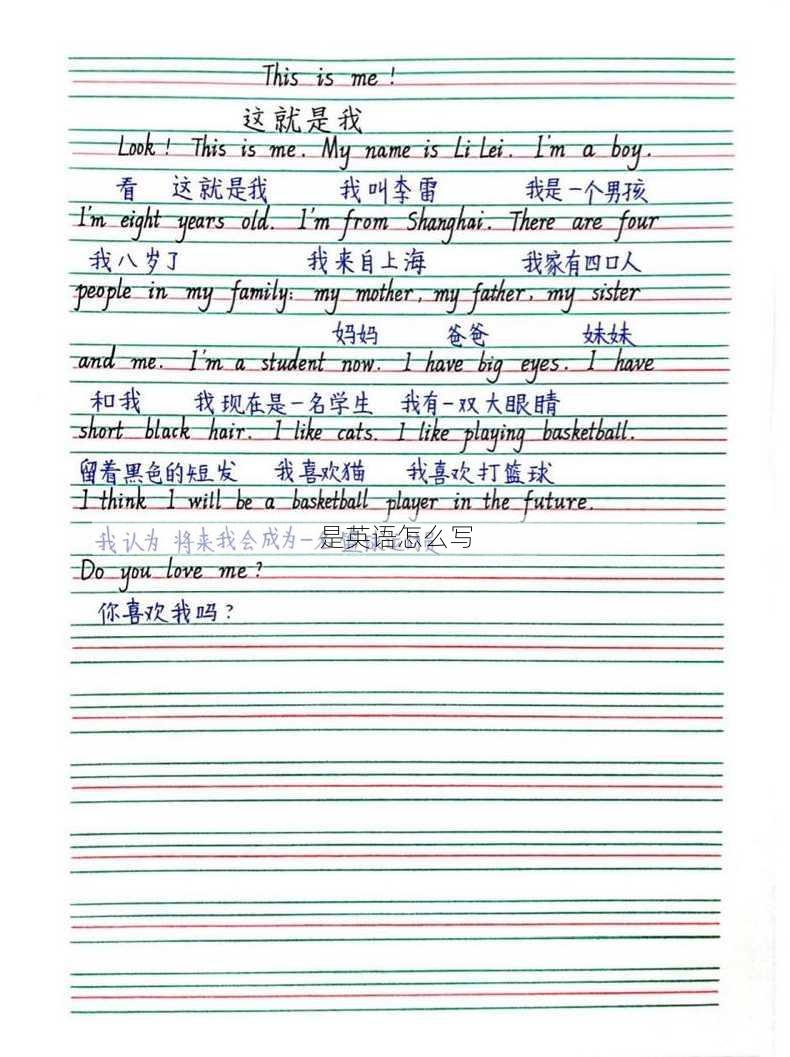 This is me!
这就是我
Look! This is me. My name is Li Lei. I'm a boy.
看 这就是我 我叫李雷 我是一个男孩
I'm eight years old. I'm from Shanghai. There are four
我八岁了 我来自上海 我家有四口人
people in my family: my mother, my father, my sister
妈妈 爸爸 妹妹
and me. I'm a student now. I have big eyes. I have
和我 我现在是一名学生 我有一双大眼睛
short black hair. I like cats. I like playing basketball.
留着黑色的短发 我喜欢猫 我喜欢打篮球
I think I will be a basketball player in the future.
我认为 将来我会成为一
是英语怎么写
Do you love me?
你喜欢我吗?